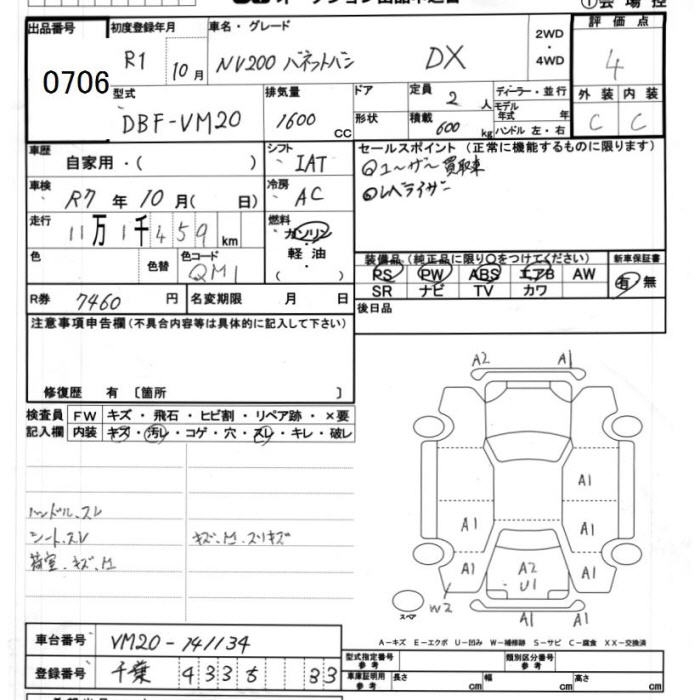 オークション出品申込書
①会場控
出品番号
0706
初度登録年月
R1 10月
車名・グレード
NV200 バネットバン DX
2WD
・
4WD
評価点
4
外装 内装
C C
型式
DBF-VM20
排気量
1600 CC
ドア
形状
定員 2 人
積載 600 kg
ディーラー・並行
モデル
年式 年
ハンドル 左・右
車歴
自家用・( )
シフト
IAT
セールスポイント (正常に機能するものに限ります)
◎ユーザー買取車
◎レベライザー
車検
R7 年 10 月( 日)
冷房
AC
走行
11万1千459km
燃料
ガソリン
軽油
( )
色
色替
色コード
QM1
装備品 (純正品に限り○をつけてください)
PS PW ABS エアB AW
SR ナビ TV カワ
新車保証書
有・無
R券 7460 円
名変期限 月 日
後日品
注意事項申告欄(不具合内容等は具体的に記入して下さい)
修復歴 有 〔箇所 〕
検査員
記入欄
FW キズ・飛石・ヒビ割・リペア跡・×要
内装 キズ・汚レ・コゲ・穴・スレ・キレ・破レ
ハンドル、スレ
シート、スレ
キズ、凹、スリキズ
荷室、キズ、凹
A2 A1
A1
A1 A1
A1 A2 A1
U1
W2 A1 A1
スペア
A-キズ E-エクボ U-凹み W-補修跡 S-サビ C-腐食 XX-交換済
車台番号
VM20-141134
登録番号
千葉 433 す 33
型式指定番号
参考
類別区分番号
参考
車庫証明用
参考
長さ cm
幅 cm
高さ cm